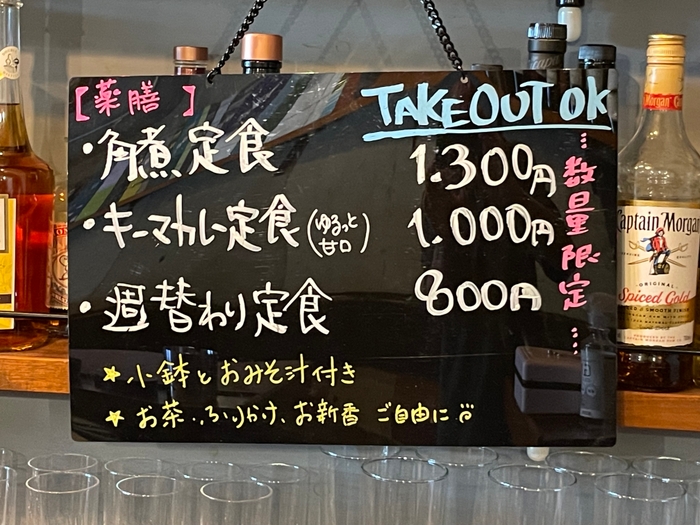 [薬膳]
TAKEOUT OK
・角煮定食 1.300円
・キーマカレー定食(ゆるっと甘口) 1.000円
・週替わり定食 800円
…数量限定…
★小鉢とおみそ汁付き
★お茶、ふりかけ、お新香 ご自由に
Captain Morgan
ORIGINAL
Spiced Gold